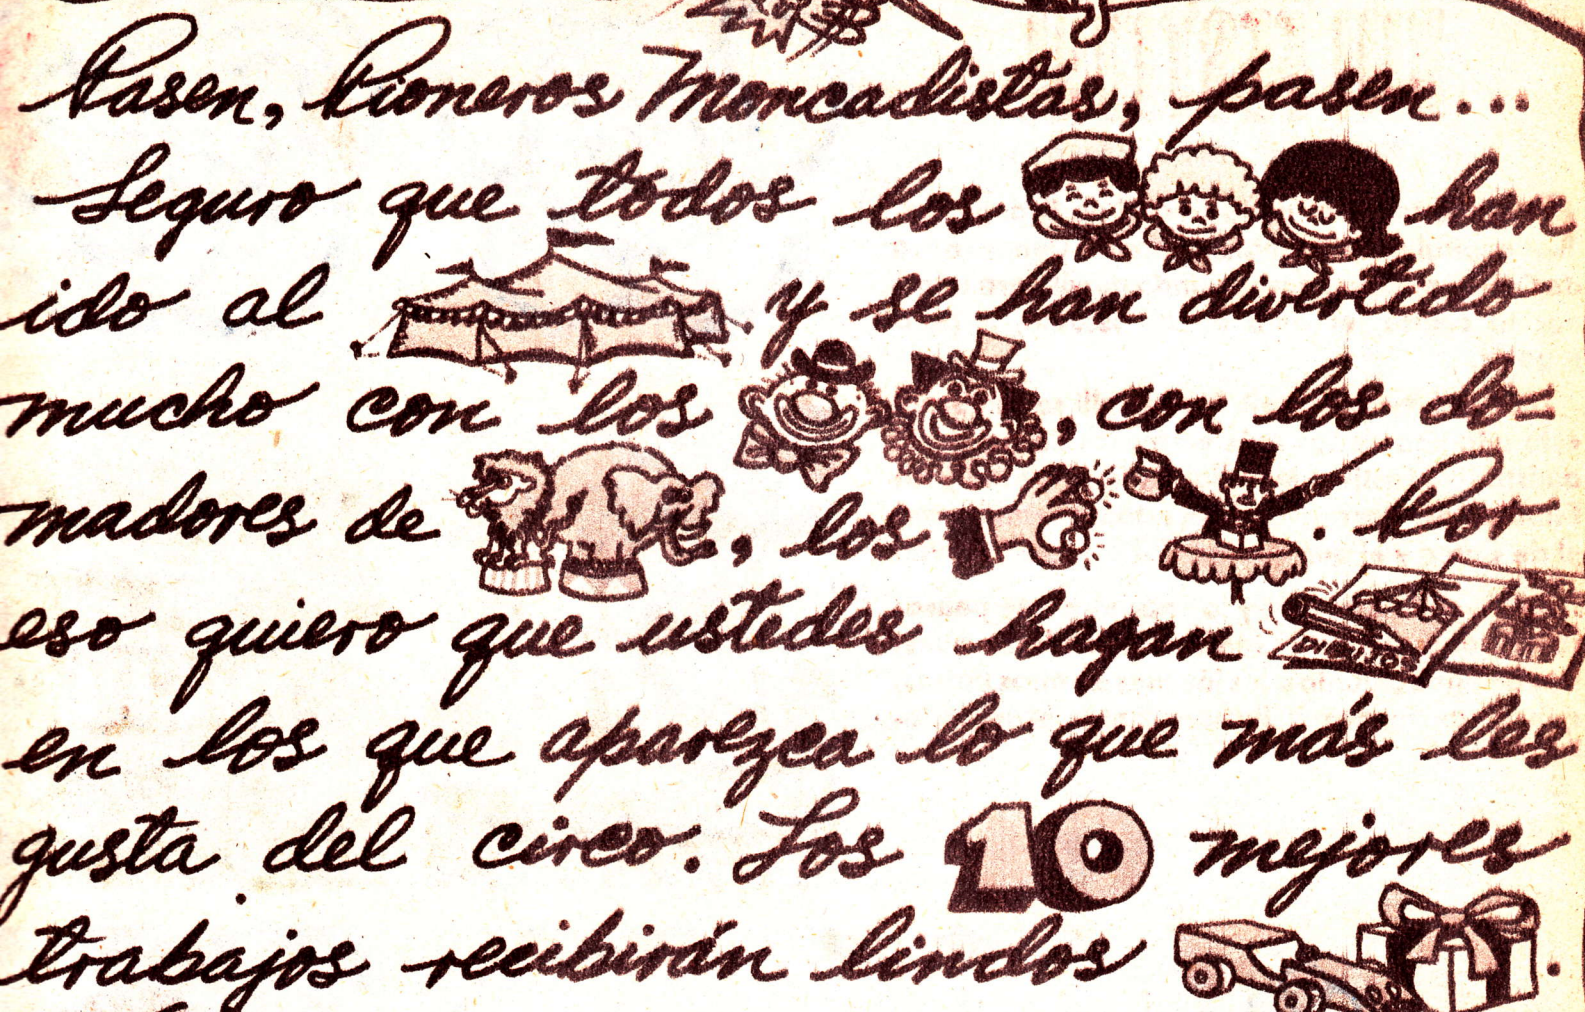 Pasen, Pioneros Moncadistas, pasen...
Seguro que todos los han
ido al y se han divertido
mucho con los , con los do-
madores de , los . Por
eso quiero que ustedes hagan DIBUJOS
en los que aparezca lo que más les
gusta del circo. Los 10 mejores
trabajos recibirán lindos .